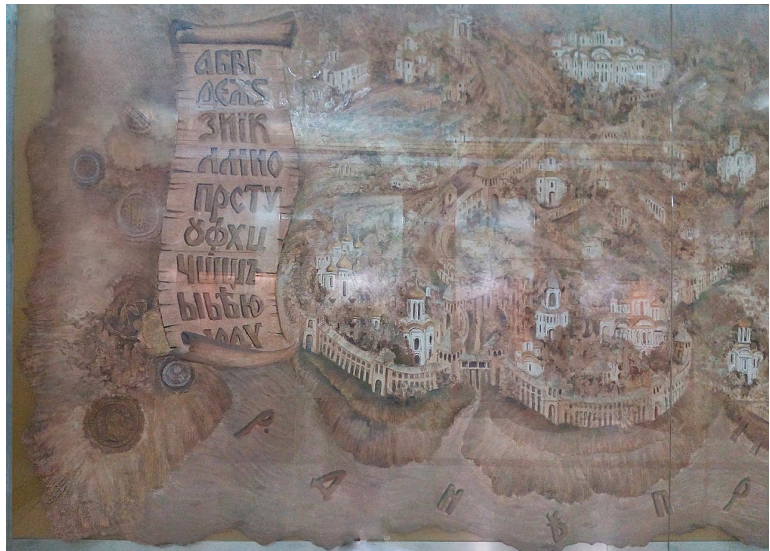 АБВГ
ДЕЖЅ
ЗИІК
ЛМНО
ПРСТУ
ȣФХЦ
ЧШЩЪ
ЫЬѢЮ
Р. Д Н Ѣ П Р